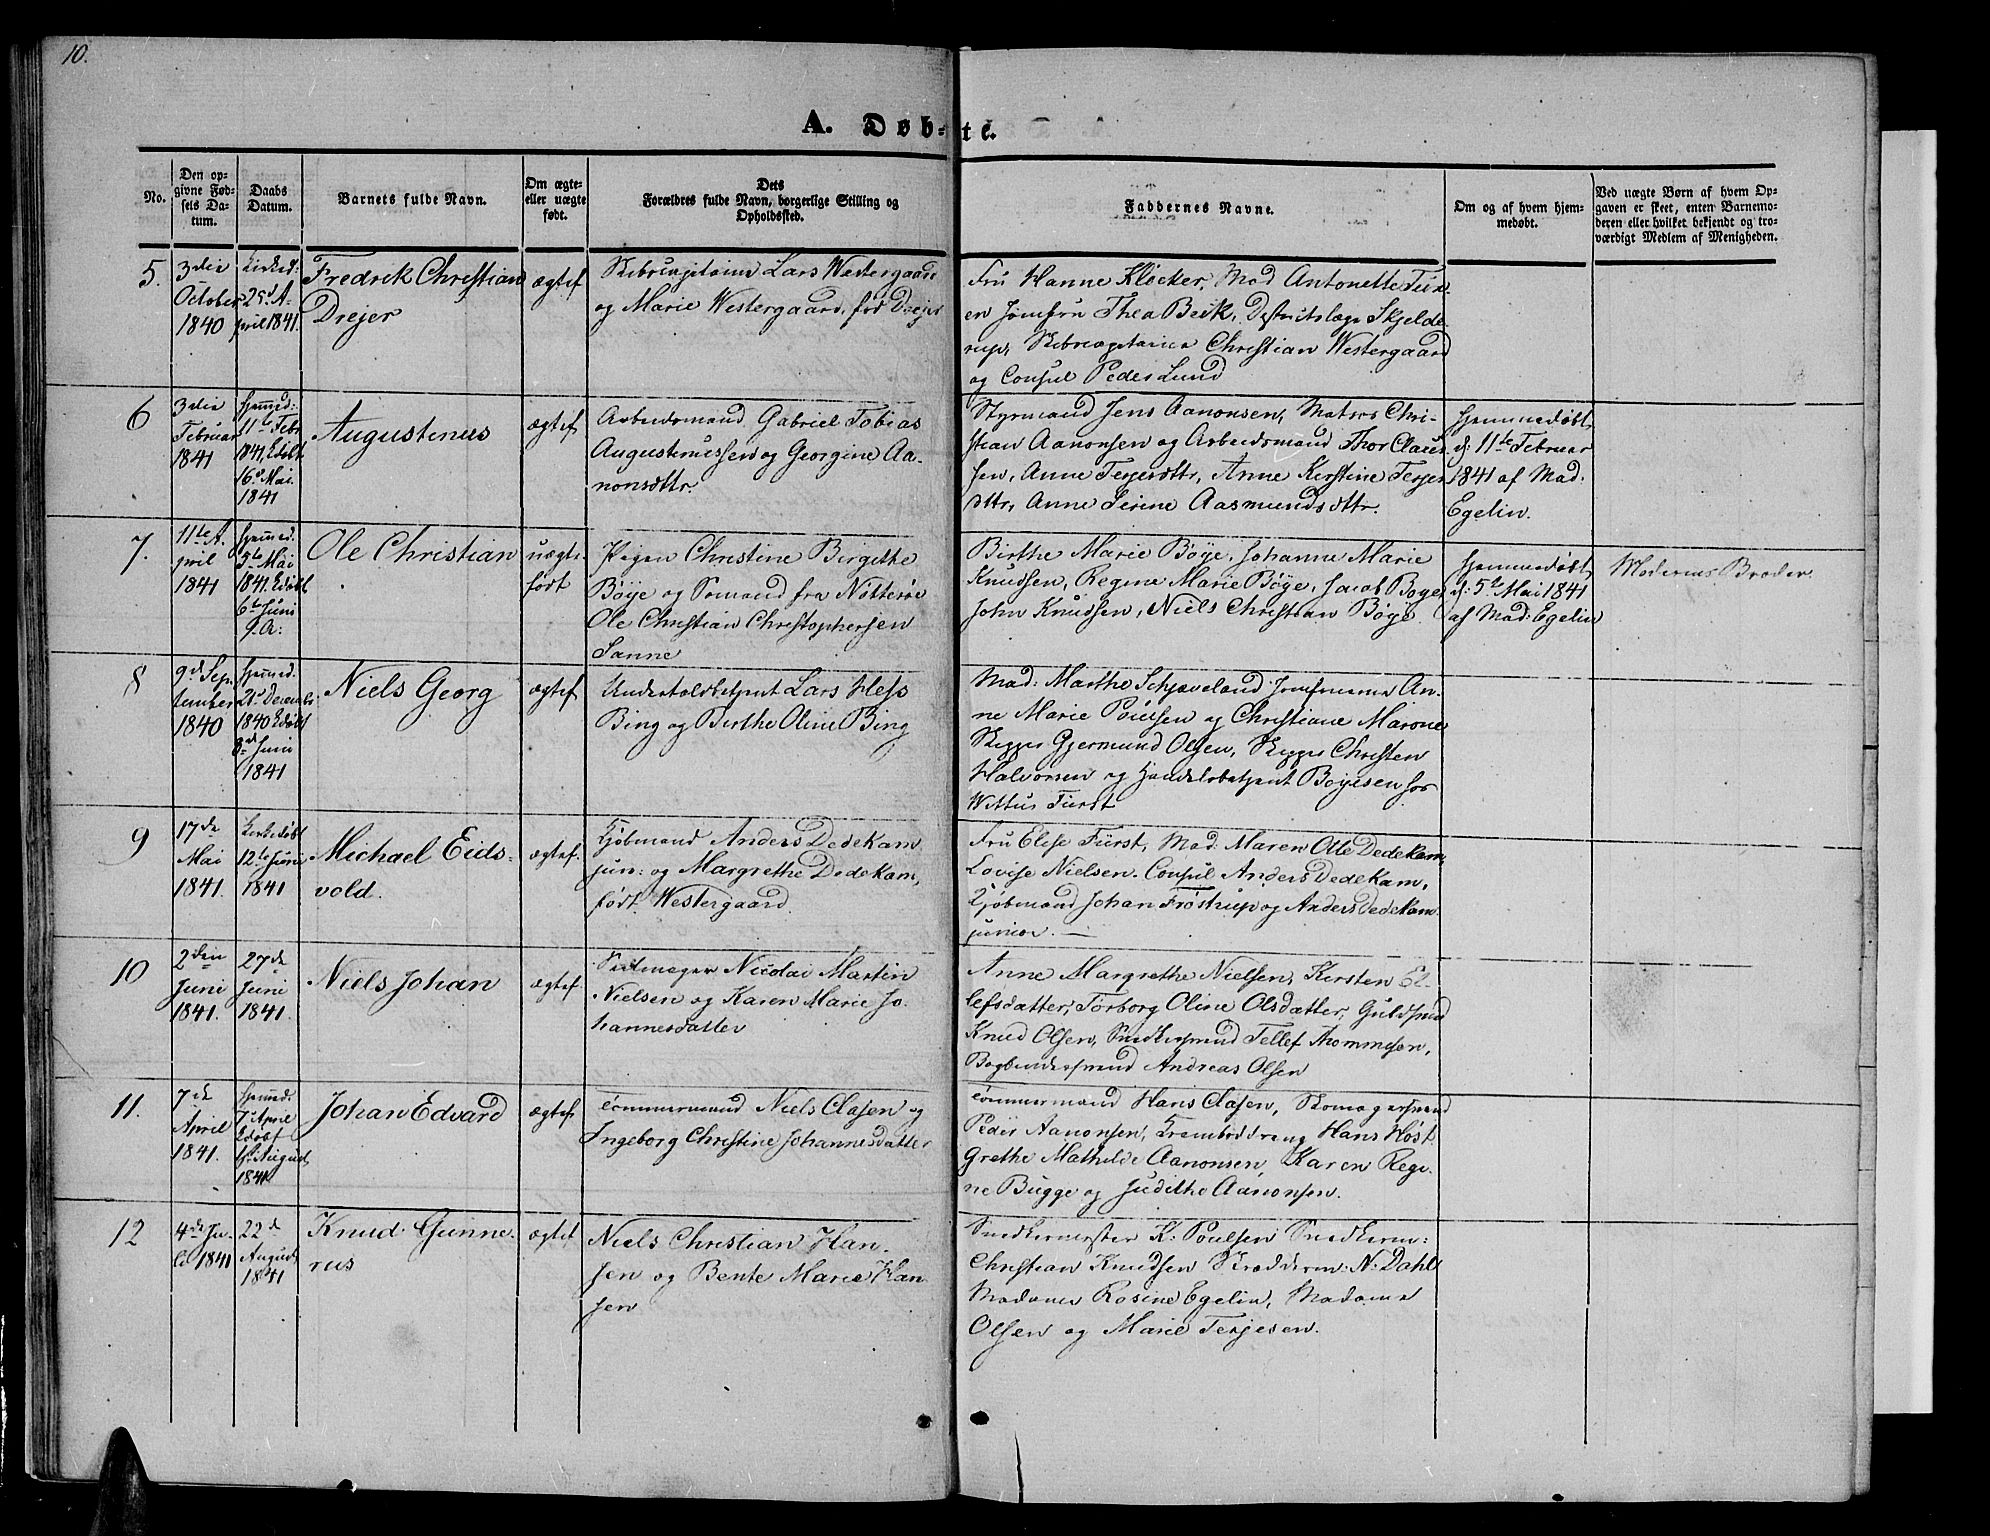 10.
A. Døb-te.
No.
Den op-
givne Fød-
sels Da-
tum.
Daabs
Datum.
Barnets fulde Navn.
Om ægte-
eller uægte
født.
Dets
Forældres fulde Navn, borgerlige Stilling og
Opholdssted.
Faddernes Navne.
Om og af hvem hjem-
medøbt.
Ved uægte Børn af hvem Op-
gaven er skeet, enten Barnemo-
deren eller hvilket bekjendt og tro-
værdigt Medlem af Menigheden.
5.
3die
October
1840
Kirked:
25d A-
pril 1841.
Fredrik Christian
Drejer
ægtef
Skibscapitaine Lars Westergaard
og Marie Westergaard, fød Drejer
Fru Hanne Kløcker, Mad Antonette
en Jomfru Thea Beck, Destriktslæge Skjelde-
rup, Skibscapitaine Christian Westergaard
og Consul Peder Lund
6
3die
Februar
1841
Hjemmed:
11te Febr
1841, Edøbt
16d Mai
1841
Augustinus
ægtef
Arbeidsmand Gabriel Tobias
Augustinussen og Georgine Aa-
nonsdttr.
Styrmand Jens Aanonsen, Matros Chri-
stian Aanonsen og Arbeidsmand Thor Claus-
sen, Anne Terjesdttr, Anne Kirstine Terjes
dttr, Anne Serine Aasmundsdttr.
Hjemmedøbt
d: 11te Februar
1841 af Mad:
Egelin.
7.
11te A.
pril
1841
Hjemmed.
5te Mai
1841. Edøbt
6te Juni
s. A:
Ole Christian
uægte
født
Pigen Christine Birgithe
Bøye og Sømand fra Nøtterøe
Ole Christian Christophersen
Sanne
Birthe Marie Bøye, Johanne Marie
Knudsen, Regine Marie Bøye, Jacob Boyer
John Knudsen, Niels Christian Bøye
Hjemmedøbt
d: 5te Mai 1841
af Mad: Egelin
Moderens Broder.
8
9d Sep.
tember
1840
Hjemmed.
21d Decemb:
1840 Edøbt
8d Juni
1841
Niels Georg
ægtef
Undertoldbetjent Lars Hess
Bing og Birthe Oline Bing
Mad: Marthe Schjæveland Jomfruerne An-
ne Marie Poulsen og Christiane Marone
Skipper Gjermund Olsen, Skipper Christen
Halvorsen og Handelsbetjent Boyesen for
Wettus Fürst
9
17de
Mai
1841.
Kirkedøbt
12te Juni
1841
Michael Eids-
vold.
ægtef.
Kjøbmand Anders Dedekam
jun: og Margrethe Dedekam,
født. Westergaard.
Fru Elise Fürst, Mad: Maren Otte Dedekam,
Lovise Nielsen. Consul Anders Dedekam,
Kjøbmand Johan Frøstrup og Anders Dedekam
junior. —
10
2den
Juni
1841.
27de
Juni
1841.
Niels Johan
ægtef
Seilmager Nicolai Martin
Nielsen og Karen Marie Jo-
hannesdatter
Anne Margrethe Nielsen, Kirsten El-
lefsdatter, Torborg Oline Olsdatter, Guldsmed
Knud Olsen, Snedkersvend Tellef Thommesen,
Bogbindersvend Andreas Olsen
11.
7de
April
1841.
Hjemmed.
7d April
Edøbt
1ste August
1841
Johan Edvard
ægtef
Tømmermand Niels Clasen og
Ingeborg Christine Johannesdatter
Tømmermand Hans Clasen, Skomagersvend
Peder Aanonsen, Kramboddreng Hans Høst
Grethe Mathilde Aanonsen, Karen Regi-
ne Bugge og Judithe Aanonsen.
12
4de Ju-
li 1841
22d
August
1841
Knud Gunne-
rus
ægtef
Niels Christian Han-
sen og Bente Marie Han
sen
Snedkermester K. Poulsen Snedkerm:
Christian Knudsen Skrædderm: N. Dahl
Madame Rosine Egelin, Madame
Olsen og Marie Terjesen.